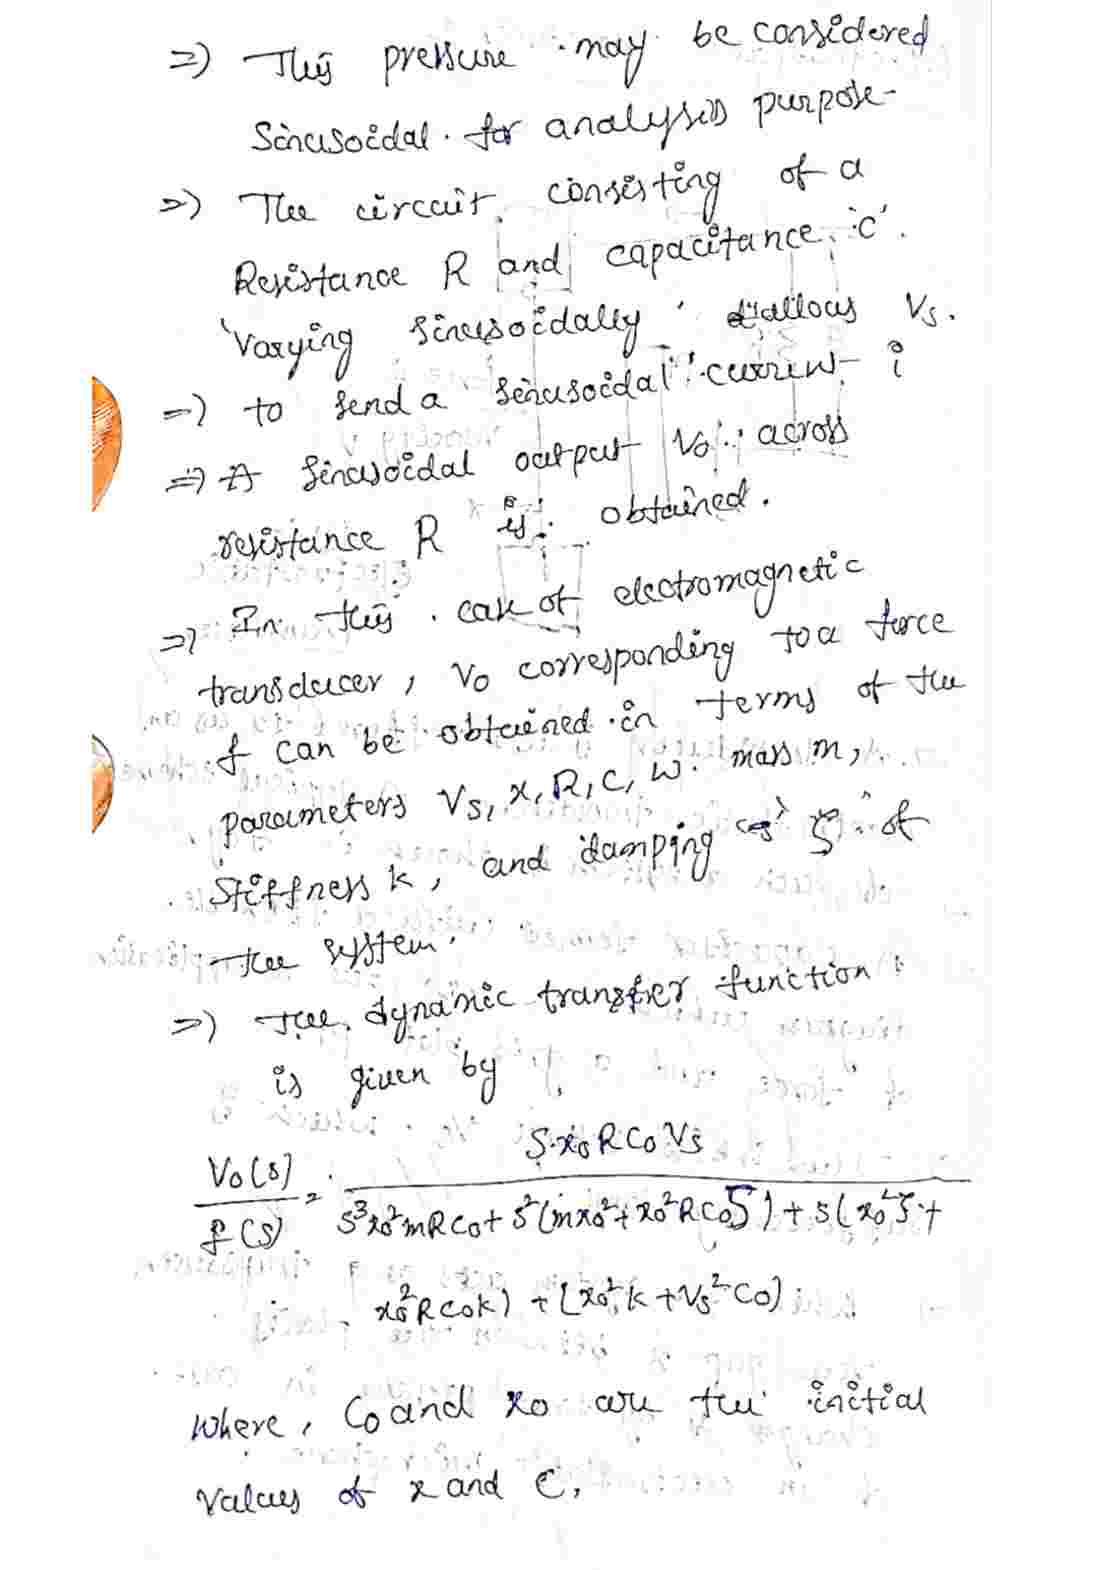 =) This pressure may be considered
Sinusoidal for analysis purpose-
=) The circuit consisting of a
Resistance R and capacitance 'c'.
Varying sinusoidally allows Vs.
=) to send a sinusoidal current i
=) A sinusoidal output Vo across
resistance R is obtained.
=) In this case of electromagnetic
transducer, Vo corresponding to a force
f can be obtained in terms of the
parameters Vs, x, R, C, W. mass m,
Stiffness k, and damping ζ of
The system.
=) The dynamic transfer function
is given by
Vo(s)/f(s) = S x₀ R C₀ Vs / S³x₀²mRC₀ + S²(mx₀² + x₀²RC₀ζ) + S(x₀²ζ +
x₀²RC₀k) + (x₀²k + Vs²C₀)
Where, C₀ and x₀ are the initial
values of x and C.